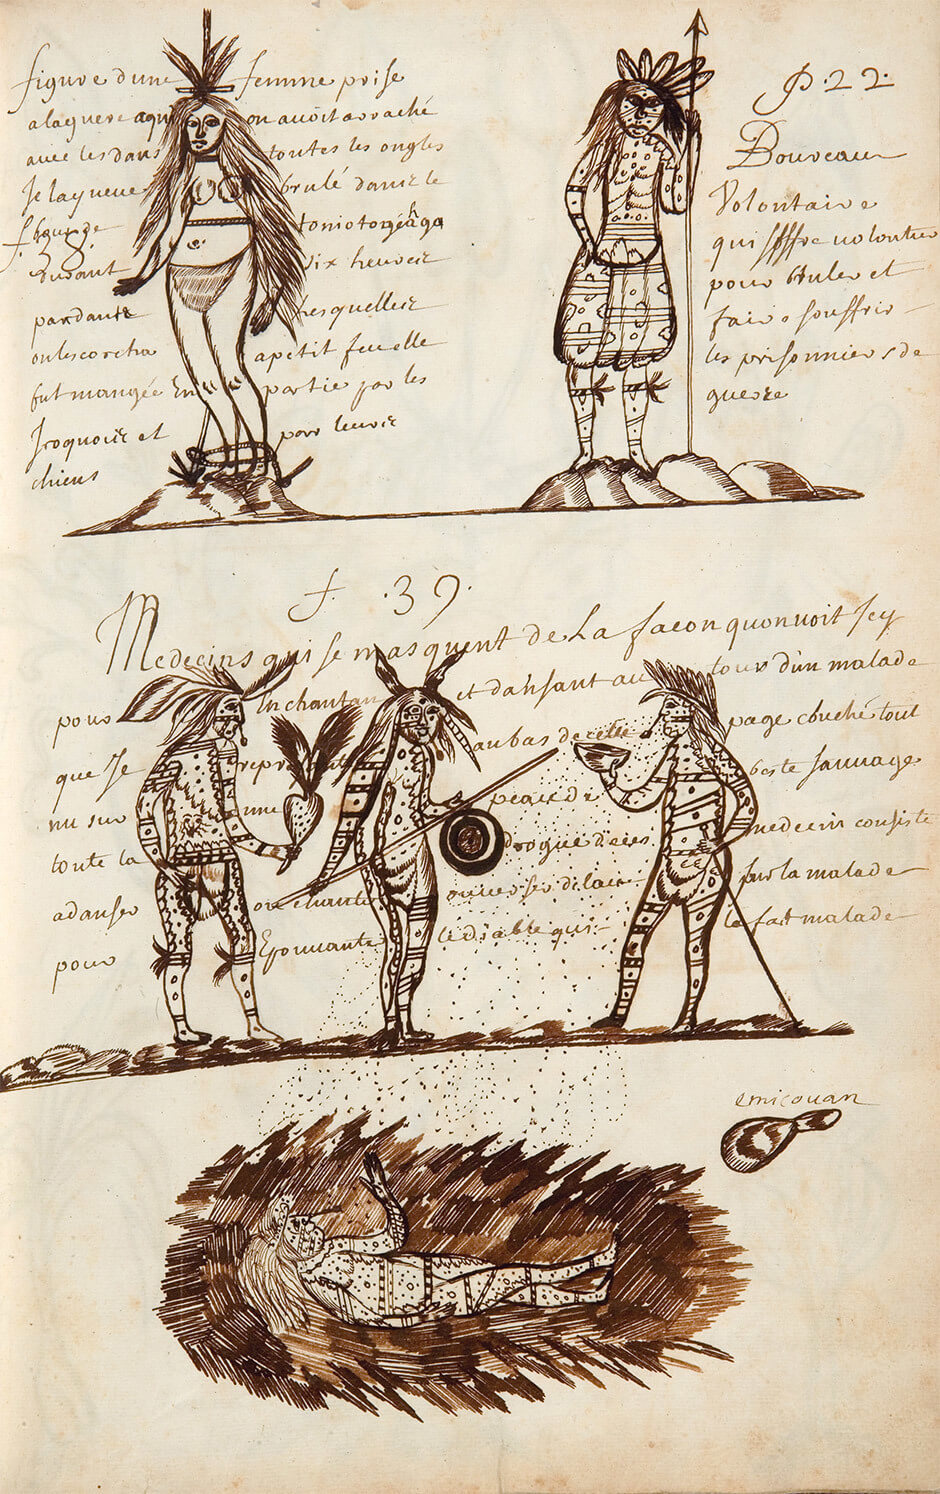 figure dune femme prise
a la guere a qui on auoit arraché
auec les dans toutes les ongles
Je lay ueue brulé dans le
f. 38.
toniotogéhaga
durant Six heures
pandant lesquelles
on lescorcha a petit feu elle
fut mangée En partie par les
Iroquois et par leurs
chiens
P. 22.
Boureau
Volontaire
qui soffre uolontier
pour bruler et
faire souffrir
les prisonniers de
guerre
f. 39.
Medecins qui se masquent de La facon quon uoit Icy
pour Enchantan et dansant au tour d'un malade
que Je au bas de cette page chuché tout
nu sur une peau de beste sauuage
toute la drogue de ces medecin consiste
a danser ou chante sur la malade
pour Epouuante le diable qui le fait malade
emicouan